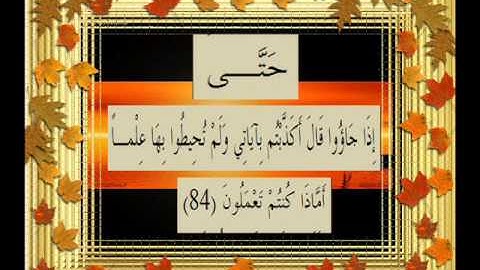 حَتَّـــى
إِذَا جَاؤُوا قَالَ أَكَذَّبْتُم بِآيَاتِي وَلَمْ تُحِيطُوا بِهَا عِلْمـــاً
أَمَّاذَا كُنتُمْ تَعْمَلُونَ (84)